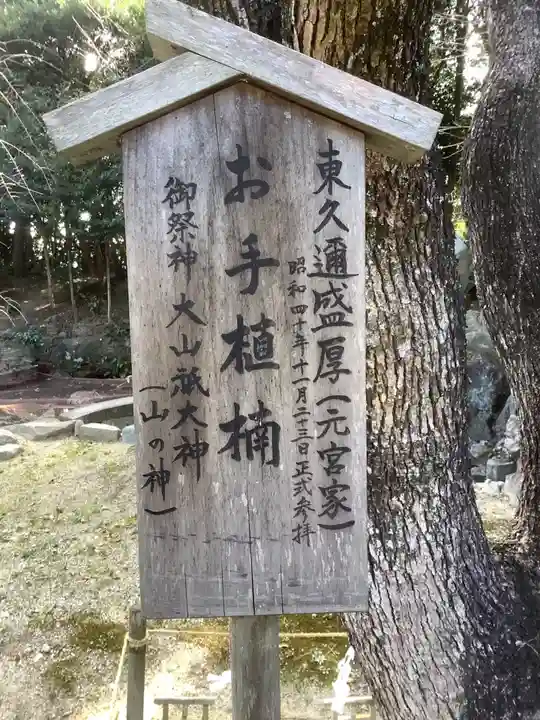 東久邇盛厚(元宮家)
昭和四十年十一月二十三日正式参拝
お手植楠
御祭神 大山祇大神
(山の神)